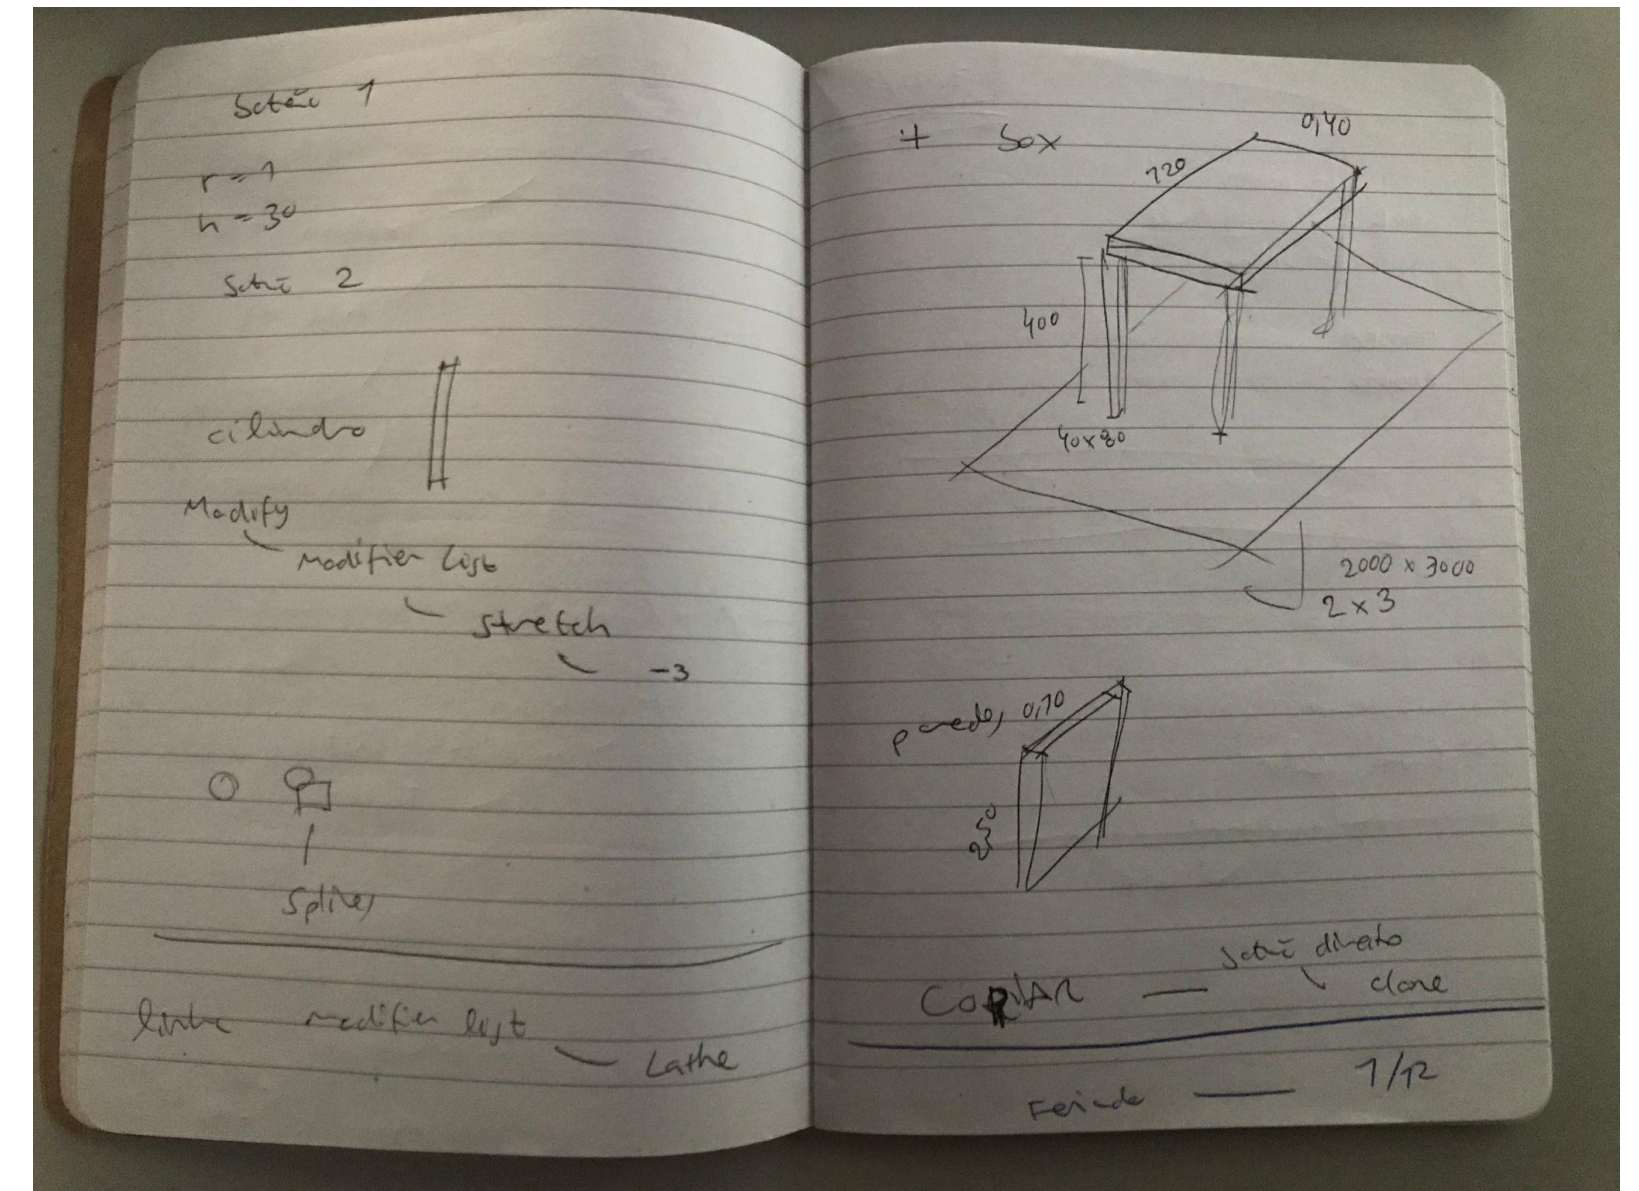 botão 1
r = 1
h = 30
botão 2
cilindro
Modify
Modifier List
Stretch
-3
Splines
linha modifier list
Lathe
+ box
0,40
120
400
40x80
2000 x 3000
2 x 3
paredes 0,10
250
botão direito
COPIAR — clone
Feriado — 1/12